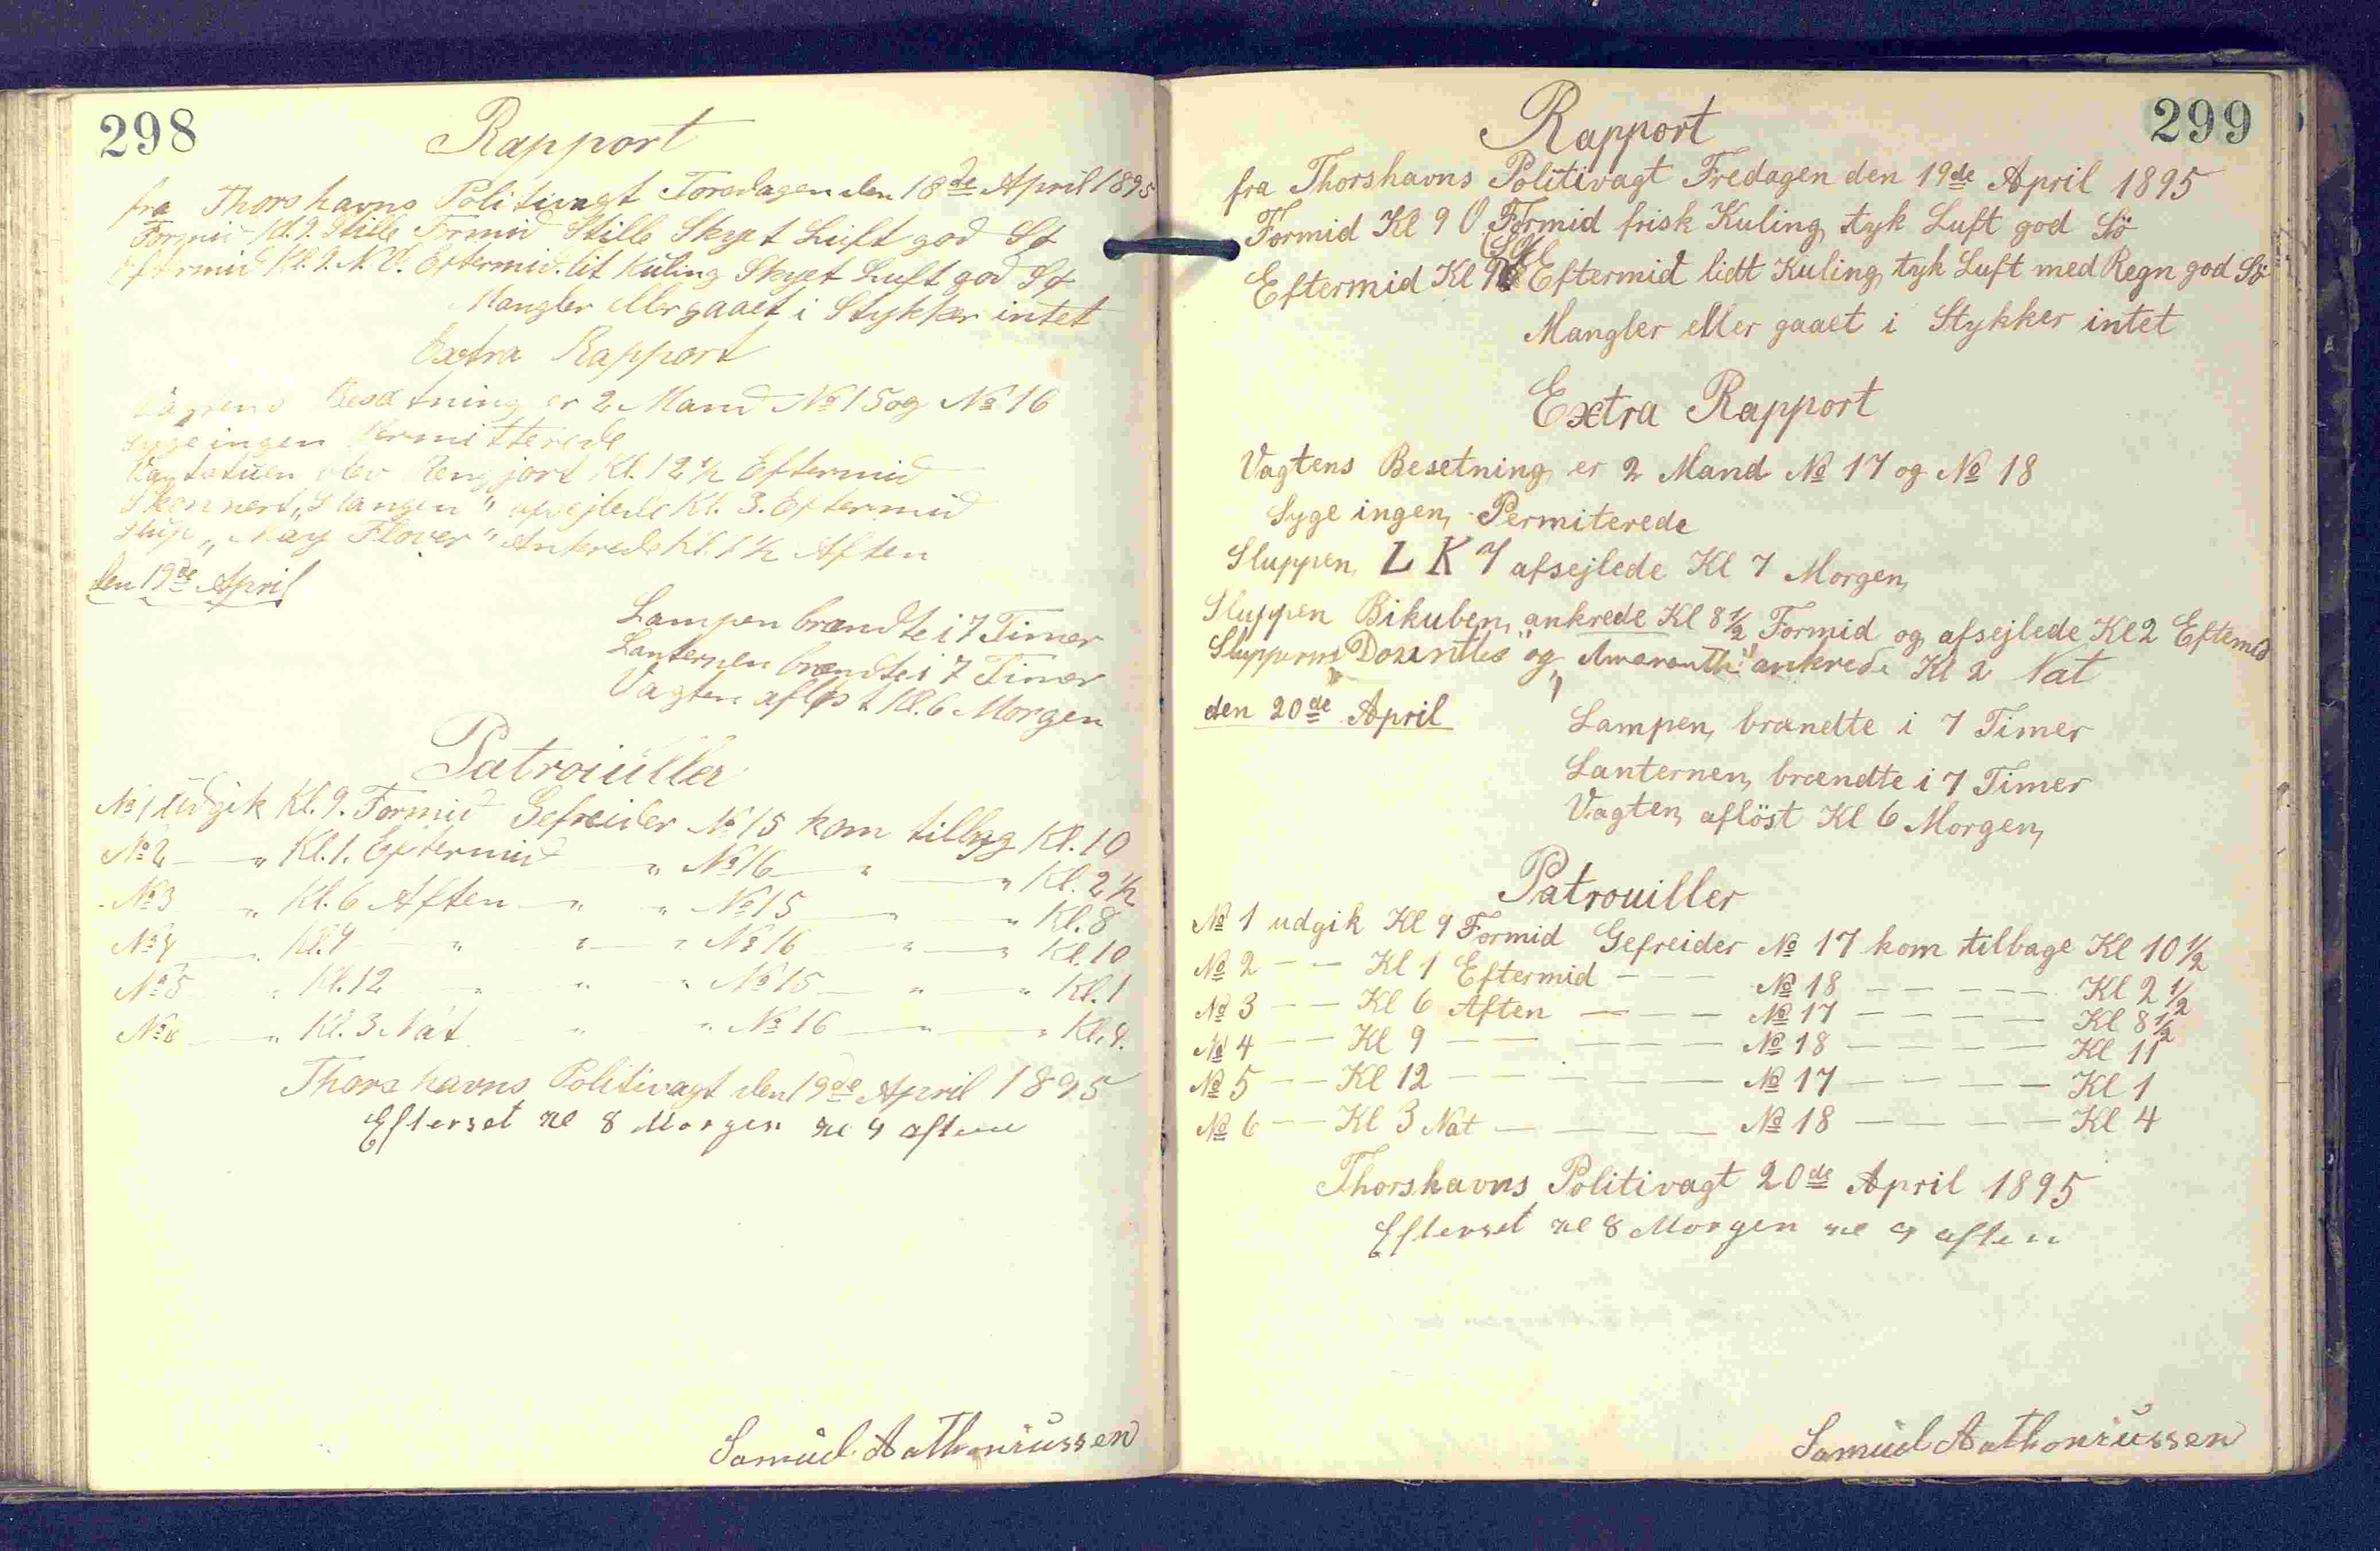 298
Rapport
fra Thorshavns Politivagt Torsdagen den 18de April 1895
Formid Kl. 9. Stille Formid Stille Skyet Luft god Sø
Eftermid Kl. 9. N.O. Eftermid. lit Kuling Skyet Luft god Sø
Mangler eller gaaet i Stykker intet
Extra Rapport
Besætning er 2 Mand № 15 og № 16
Syge ingen Permitterede
Vagtstuen blev Rengjort Kl. 12 1/2 Eftermid
Skonnert „Slangen" afsejlede Kl. 3. Eftermid
Slup „May Flover" Ankrede Kl. 1 1/2 Aften
den 19de April
Lampen brændte i 7 Timer
Lanternen brændte i 7 Timer
Vagten afløst Kl. 6 Morgen
Patrouiller
№ 1 Udgik Kl. 9. Formid Gefreider № 15 kom tilbag Kl. 10
№ 2 — „ Kl. 1. Eftermid „ № 16 — „ — „ Kl. 2 1/2
№ 3 „ Kl. 6 Aften — „ „ № 15 — „ „ Kl. 8
№ 4 — „ Kl. 9 „ „ — „ № 16 „ — „ Kl. 10
№ 5 „ Kl. 12 „ „ „ № 15 — „ — „ Kl. 1
№ 6 — „ Kl. 3 Nat „ „ № 16 — „ — „ Kl. 4.
Thorshavns Politivagt den 19de April 1895
Efterset Kl 8 Morgen Kl 9 aften
Samuel Anthoniussen
299
Rapport
fra Thorshavns Politivagt Fredagen den 19de April 1895
Formid Kl 9 O Formid frisk Kuling tyk Luft god Sö
Eftermid Kl 9 Eftermid lidt Kuling tyk Luft med Regn god Sö
Mangler eller gaaet i Stykker intet
Extra Rapport
Vagtens Besetning er 2 Mand № 17 og № 18
Syge ingen, Permiterede
Sluppen L K 7 afsejlede Kl 7 Morgen
Sluppen Bikuben ankrede Kl 8 1/2 Formid og afsejlede Kl 2 Eftemid
og „Amaranth" ankrede Kl 2 Nat
den 20de April
Lampen brændte i 7 Timer
Lanternen brændte i 7 Timer
Vagten aflöst Kl 6 Morgen
Patrouiller
№ 1 udgik Kl 9 Formid Gefreider № 17 kom tilbage Kl 10 1/2
№ 2 — — Kl 1 Eftermid — — — № 18 — — — — Kl 2 1/2
№ 3 — — Kl 6 Aften — — — № 17 — — — — Kl 8 1/2
№ 4 — — Kl 9 — — — — — № 18 — — — — Kl 11
№ 5 — — Kl 12 — — — — — № 17 — — — — Kl 1
№ 6 — — Kl 3 Nat — — — — № 18 — — — — Kl 4
Thorshavns Politivagt 20de April 1895
Efterset Kl 8 Morgen Kl 9 aften
Samuel Anthoniussen